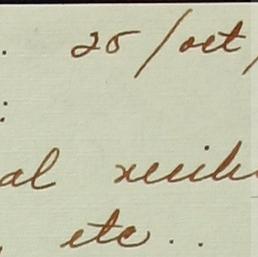 . 25/oct/
:
al
, etc..